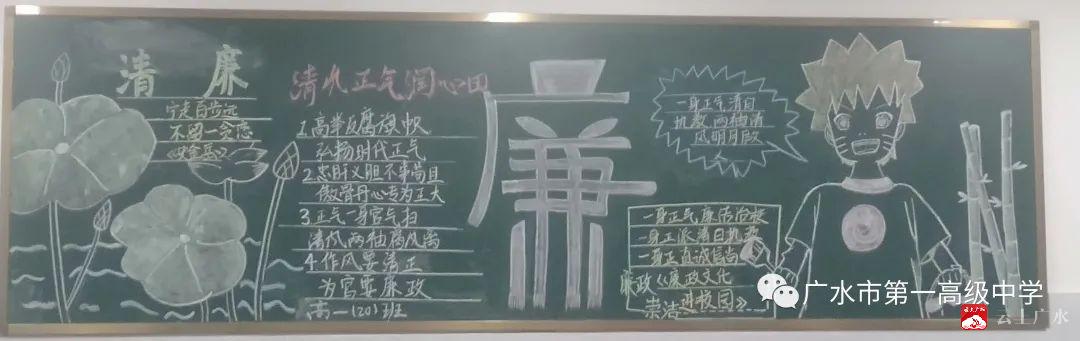 清 廉
宁走百步远
不留一念
清风正气润心田
1.高举反腐旗帜
弘扬时代正气
2.忠肝义胆不事苟且
傲骨丹心专为正大
3.正气一身官气扫
清风两袖
4.作风要清正
为官要廉政
高一(20)班
廉
一身正气清白
执教两袖清
风明月
一身正气廉洁治校
一身正派清白执教
一身正直诚信尚
廉政《廉政文化
崇洁进校园》
广水市第一高级中学
云上广水